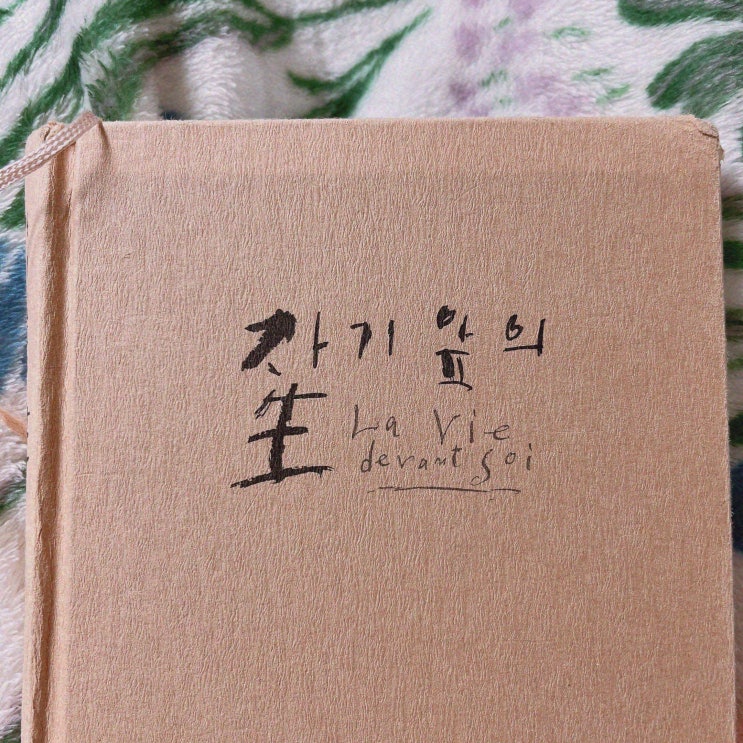 자기 앞의
生 La Vie
devant Soi